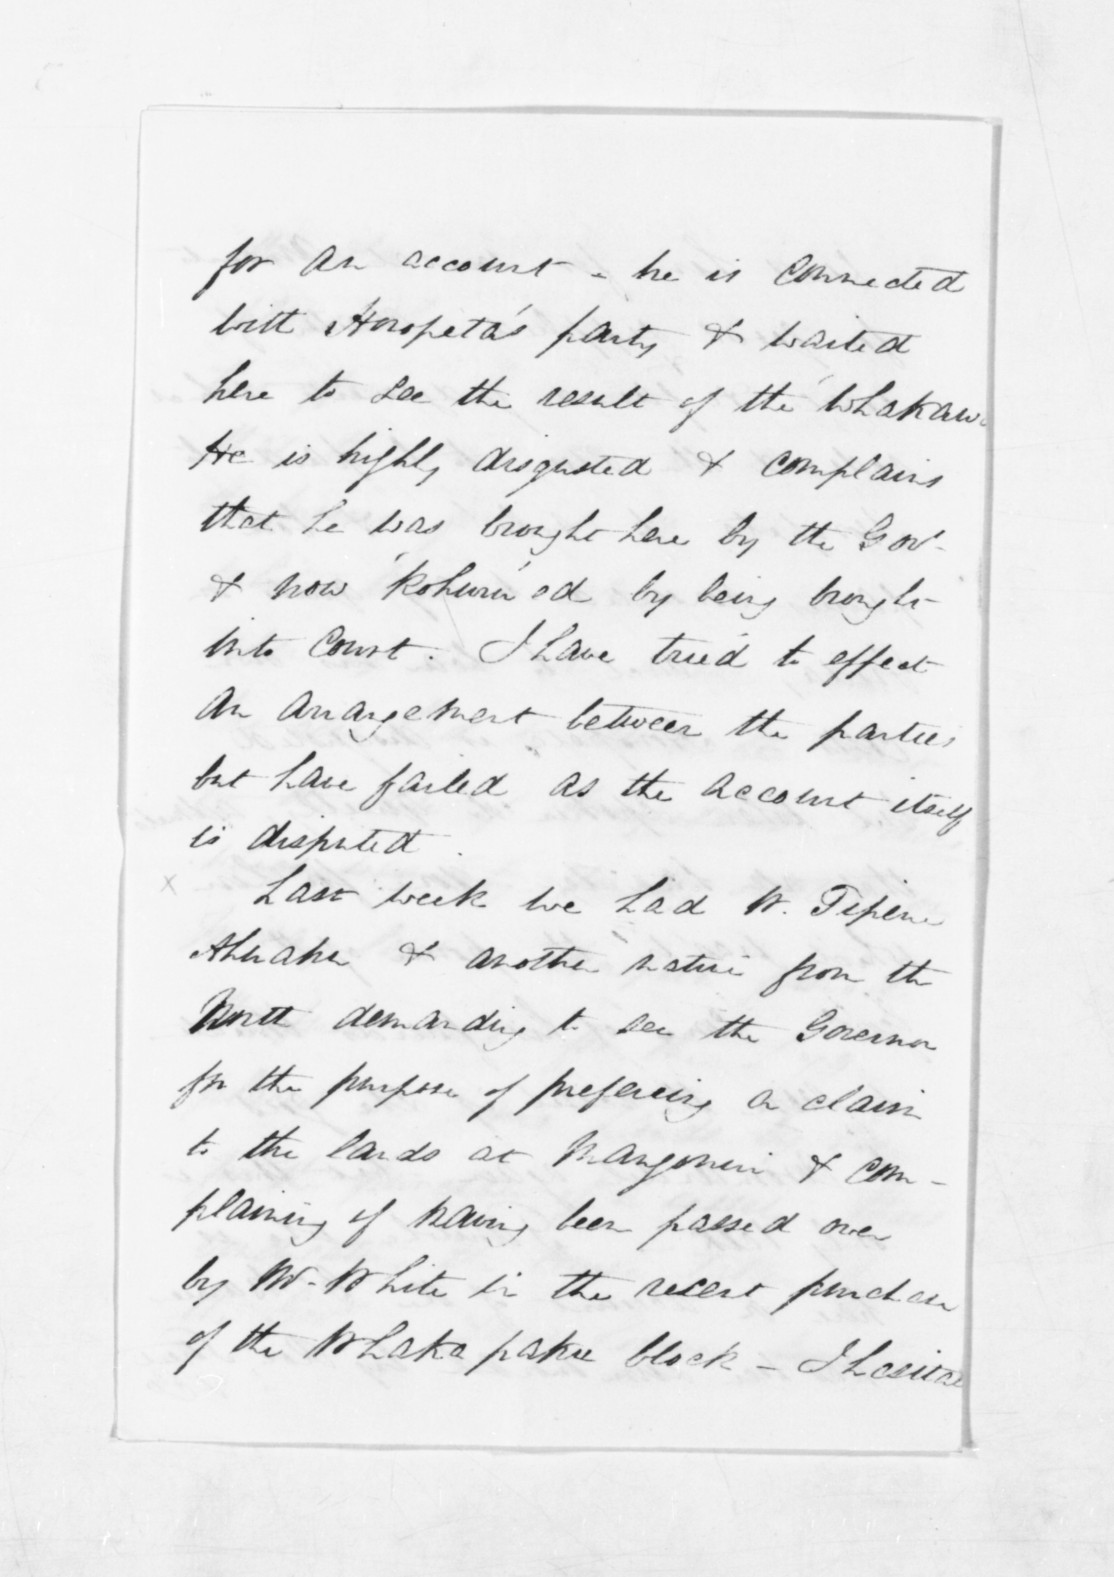 for an account - he is connected
with Horopeta's party & waited
here to see the result of the 'whakawa
He is highly disgusted & complains
that he was brought here by the Govt
& now 'kohuru'ed by being brought
into Court. I have tried to effect
an arrangement between the parties
but have failed as the account itself
is disputed.
x Last week we had W. Tipene
& another native from the
North demanding to see the Governor
for the purpose of prefering a claim
to the lands at Mangonui & com-
plaining of having been passed over
by Mr. White in the recent purchase
of the Whakapaku block - I hesitate